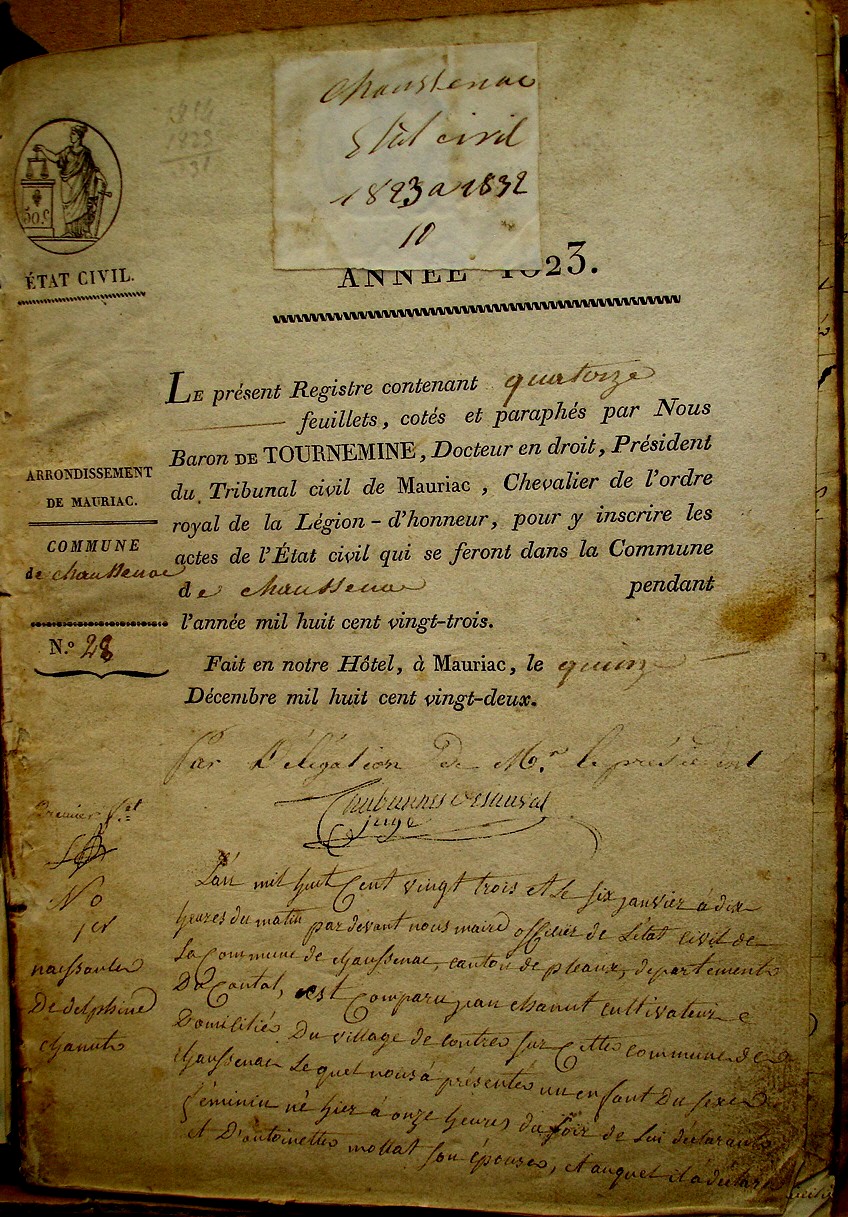 Chaussenac
Etat civil
1823 a 1832
10
50 c
ÉTAT CIVIL.
ANNÉE 1823.
LE présent Registre contenant quatorze
feuillets, cotés et paraphés par Nous
Baron DE TOURNEMINE, Docteur en droit, Président
du Tribunal civil de Mauriac, Chevalier de l'ordre
royal de la Légion-d'honneur, pour y inscrire les
actes de l'État civil qui se feront dans la Commune
de chaussenac pendant
l'année mil huit cent vingt-trois.
Fait en notre Hôtel, à Mauriac, le quinze
Décembre mil huit cent vingt-deux.
ARRONDISSEMENT
DE MAURIAC.
COMMUNE
de chaussenac
N.o 28
par Délégation de Mr. le président
juge
Premier f.et
No
1er
naissance
De delphine
chanut
L'an mil huit Cent vingt trois et le six janvier à dix
heures du matin par devant nous maire officier de L'état Civil de
La Commune de chaussenac, canton de pleaux, département
Du Cantal, est Comparu jean chanut cultivateur
Domicilié Du village de contre sur Cette commune de
chaussenac Lequel nous à présenté un enfant Du sexe
féminin né hier à onze heures du soir de lui déclarant
et D'antoinette mollat son épouse, et auquel il à déclaré